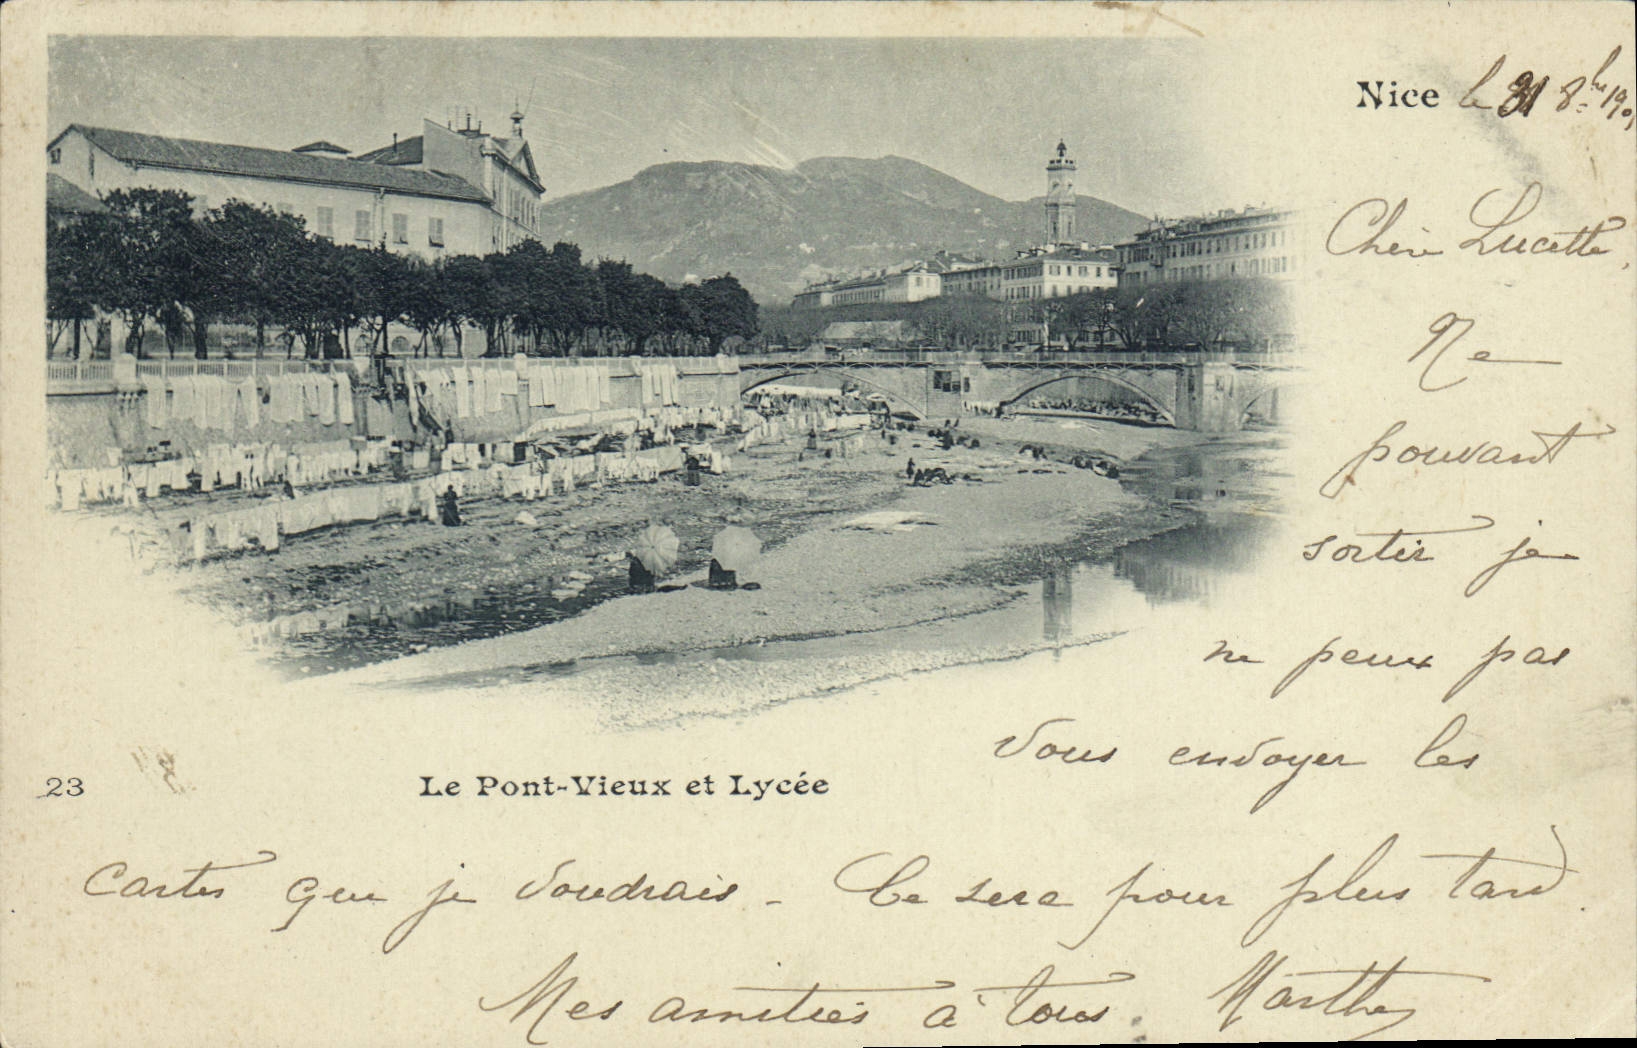 Nice le 31 8bre 190
Chère Lucette,
Ne
pouvant
sortir je
ne peux pas
vous envoyer les
23
Le Pont-Vieux et Lycée
cartes que je voudrais - Ce sera pour plus tard.
Mes amitiés à tous. Marthe